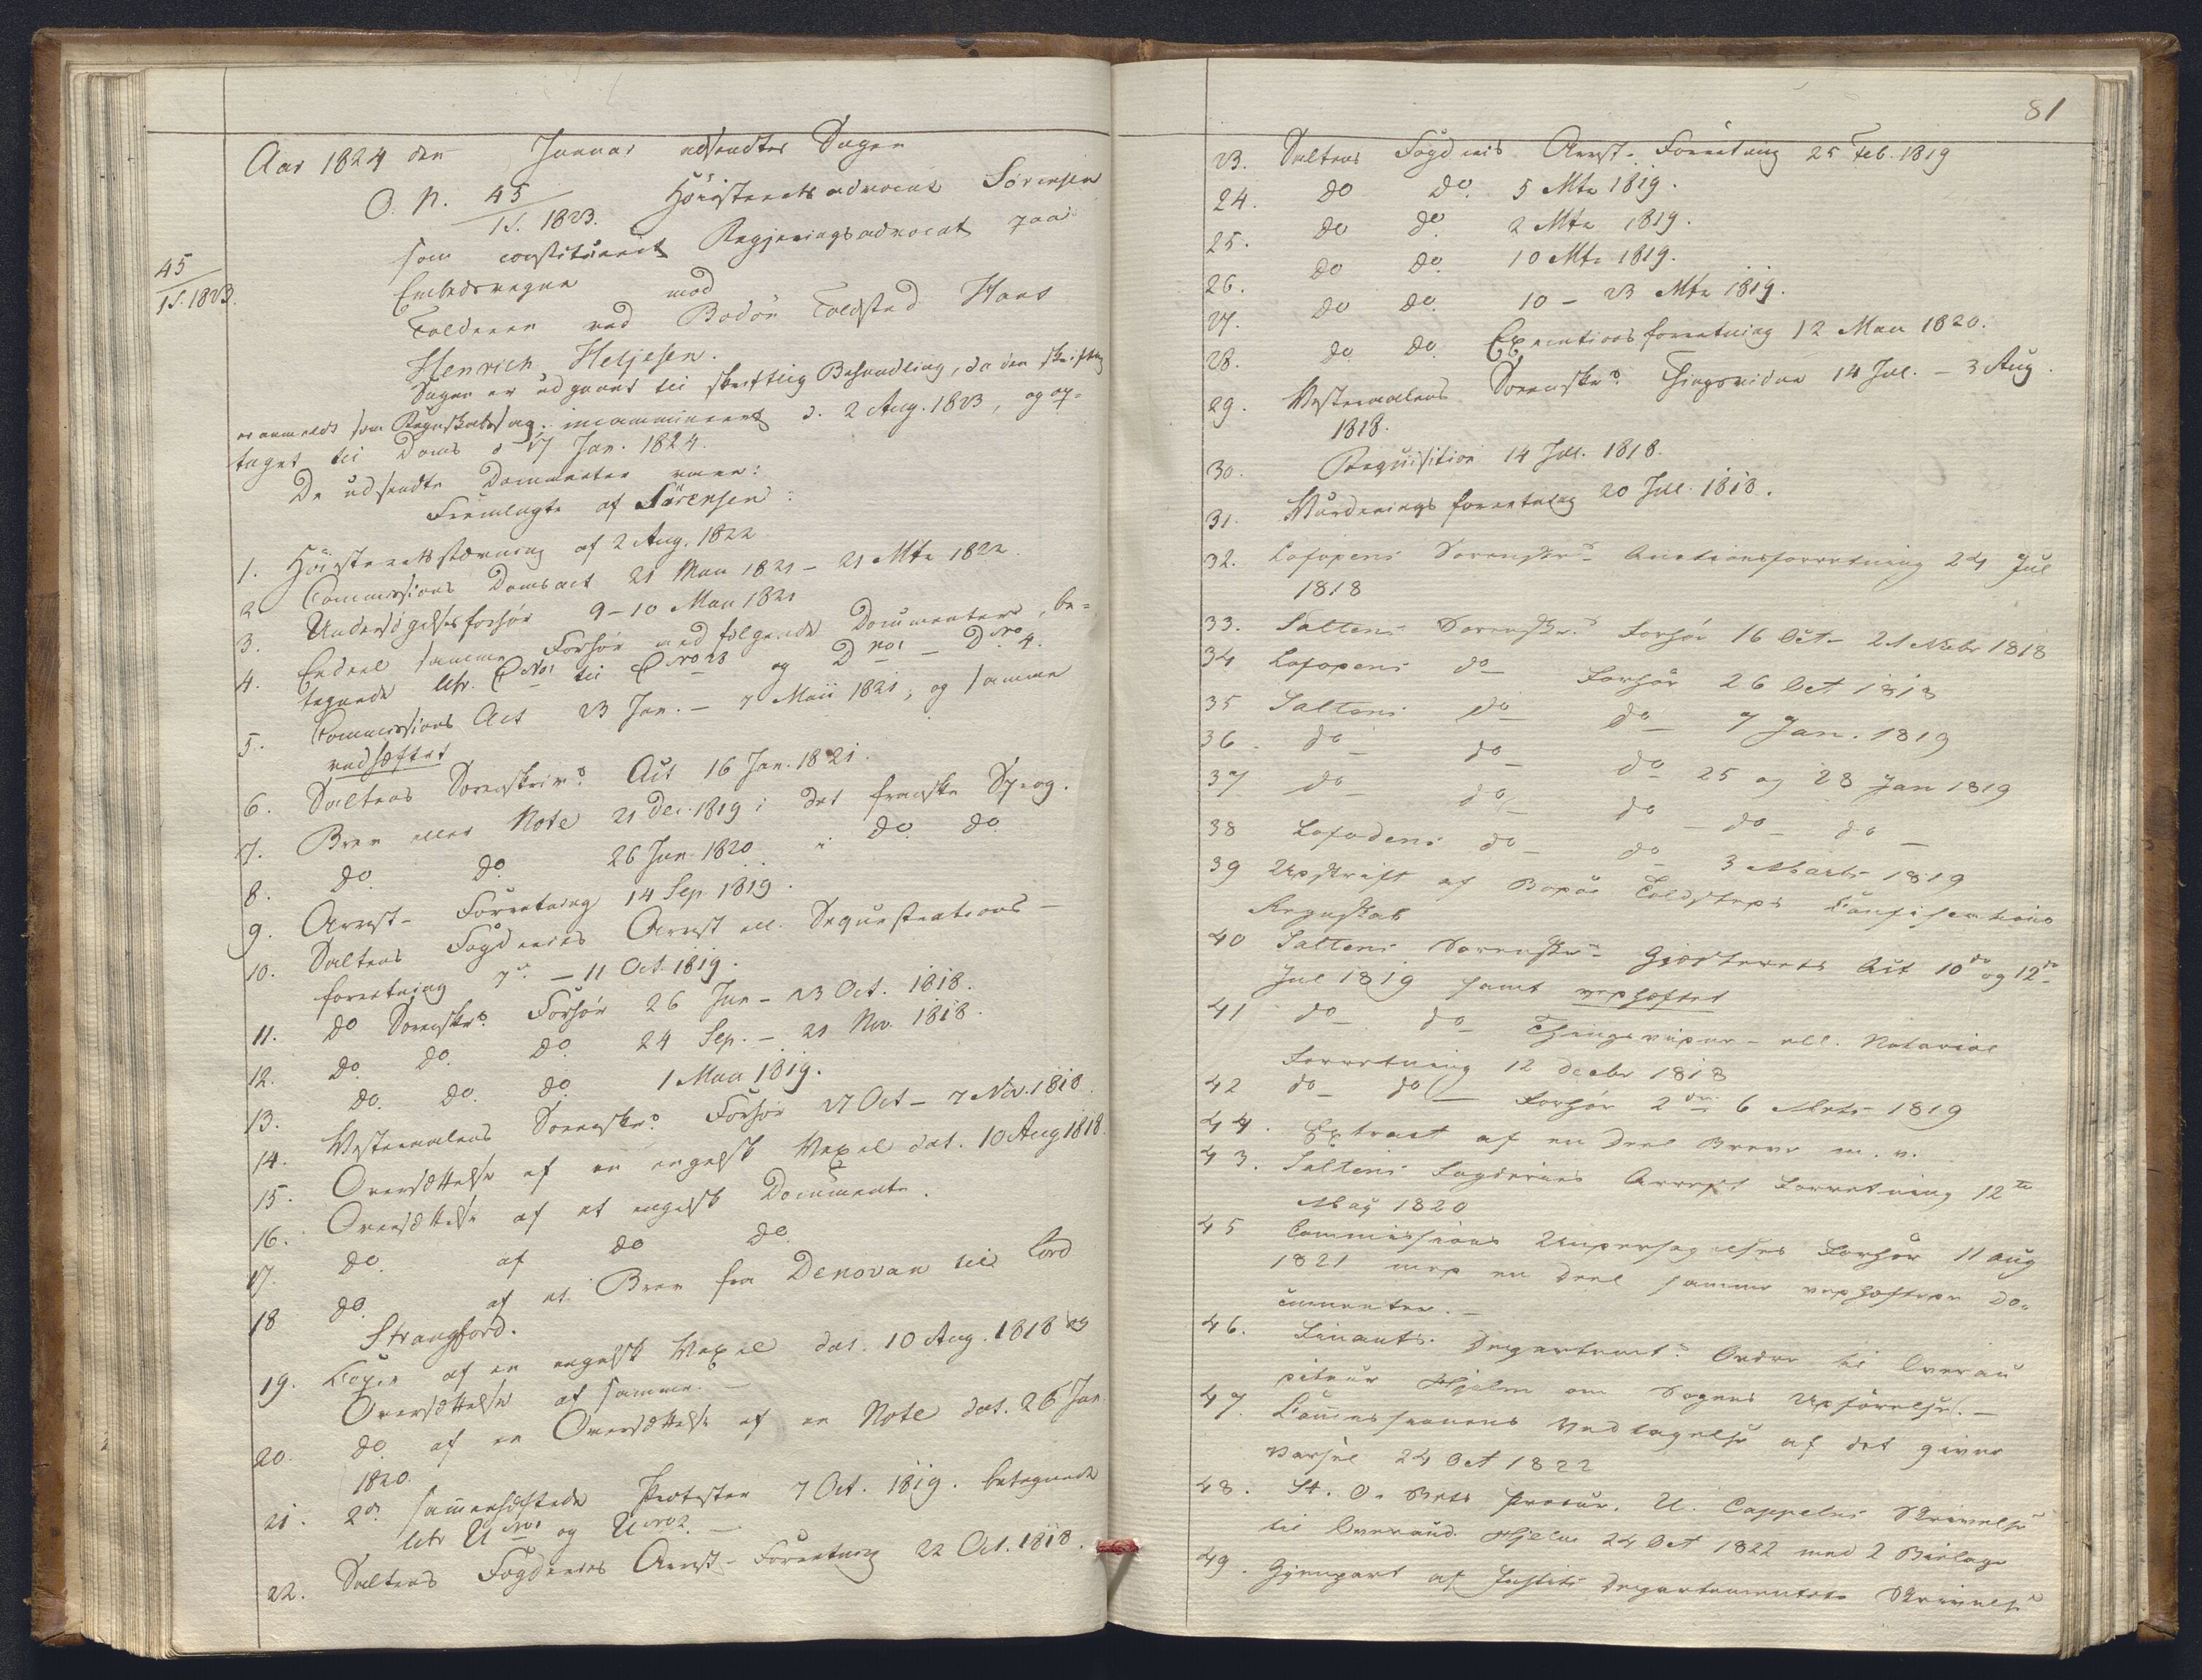 Aar 1824 den Januar udsendtes Sagen
O. N. 45/15. 1823. Höiesteretsadvocat Sörensen
som constitueret Regjeringsadvocat paa
45/15. 1823.
Embedsvegne mod
Tolderen ved Bodöe Toldsted Hans
Henrich Heltzesen.
Sagen er udgaaet til skriftlig Behandling, da den skriftlig
er anmeldt som Regnskabssag. incammineret d. 2 Aug. 1823, og op-
taget til Doms d 17 Jan. 1824.
De udsendte Documenter vare:
Fremlagte af Sörensen:
1. Höiesteretsstævning af 2 Aug. 1822
2 Commissions Domsact 21 Mai 1821 – 21 Mts 1822.
3. Undersögelsesforhör 9–10 Mai 1821
4. Endeel samme Forhör medfölgende Documenter, be-
tegnede litr. C No 1 til C No 23 og D No 1 – D No 4.
5. Commissions Act 23 Jan. – 7 Maii 1821, og samme
vedhæftet
6. Saltens Sorenskriv: Act 16 Jan. 1821.
7. Brev eller Note 21 Dec. 1819 i det franske Sprog.
8. do do 26 Jan 1820 i do do
9. Arrest- Forretning 14 Sep 1819.
10. Saltens Fogderies Arrest ell. Sequestrations-
forretning 7de – 11 Oct. 1819.
11. do Sorenskr: Forhör 26 Jun – 23 Oct. 1818.
12. do do do 24 Sep. – 21 Nov. 1818.
13. do do do 1 Mai 1819.
14. Vesteraalens Sorenskr: Forhör 27 Oct – 7 Nov. 1818.
15. Oversættelse af en engelsk Vexel dat. 10 Aug 1818.
16. Oversættelse af et engelsk Document.
17. do af do do
18 do af et Brev fra Denovan til Lord
Strangford.
19. Copie af en engelsk Vexel dat. 10 Aug. 1818 og
Oversættelse af samme. –
20. do af en Oversættelse af en Note dat. 26 Jan.
1820.
21. 2de sammenhæftede Protester 7 Oct. 1819. betegnede
litr U No 1 og U No 2. –
22. Saltens Fogderies Arrest- Forretning 22 Oct. 1818.
81
23. Saltens Fogderies Arrest- Forretning 25 Feb. 1819
24. do do 5 Mts 1819.
25. do do 2 Mts 1819.
26. do do 10 Mts 1819.
27. do do 10 – 23 Mts 1819.
28. do do Executions forretning 12 Mai 1820.
29. Vesteraalens Sorenskr: Thingsvidne 14 Jul. – 3 Aug.
1818.
30. Requisition 14 Jul. 1818.
31. Vurderings forretning 20 Jul. 1818.
32. Lofodens Sorenskr: Auctionsforretning 24 Jul
1818
33. Saltens Sorenskr: Forhör 16 Oct – 21 Novbr 1818
34 Lofodens do Forhör 26 Oct 1818
35 Saltens do do 7 Jan. 1819
36. do do do 25 og 28 Jan 1819
37 do do do do do
38 Lofodens do do 3 Marts 1819
39 Udskrift af Bodöe Toldsteds Confiscations
Regnskab
40 Saltens Sorenskr: Gjesterets Act 10de og 12te
Jul 1819 samt vedhæftet
41 do do Thingsvidne- ell. Notarial
Forretning 12 Decbr 1818
42 do do Forhör 2den 6 Mrts 1819
44. Extract af en Deel Breve m. v.
43. Saltens Fogderies Arrest Forretning 12te
May 1820
45 Commissions Undersögelses Forhör 11 Aug
1821 med en Deel samme vedhæftede Do-
cumenter. –
46. Finants- Departemt: Ordre til Overau
diteur Hjelm om Sagens Udförelse. –
47. Commissionens Vedtagelse af det givne
Varsel 24 Oct 1822
48. St. O. Rets Procur. U. Cappelens Skrivelse
til Overaud. Hjelm 24 Oct 1822 med 2 Bielage
49. Gjenpart af Justits Departementets Skrivelse